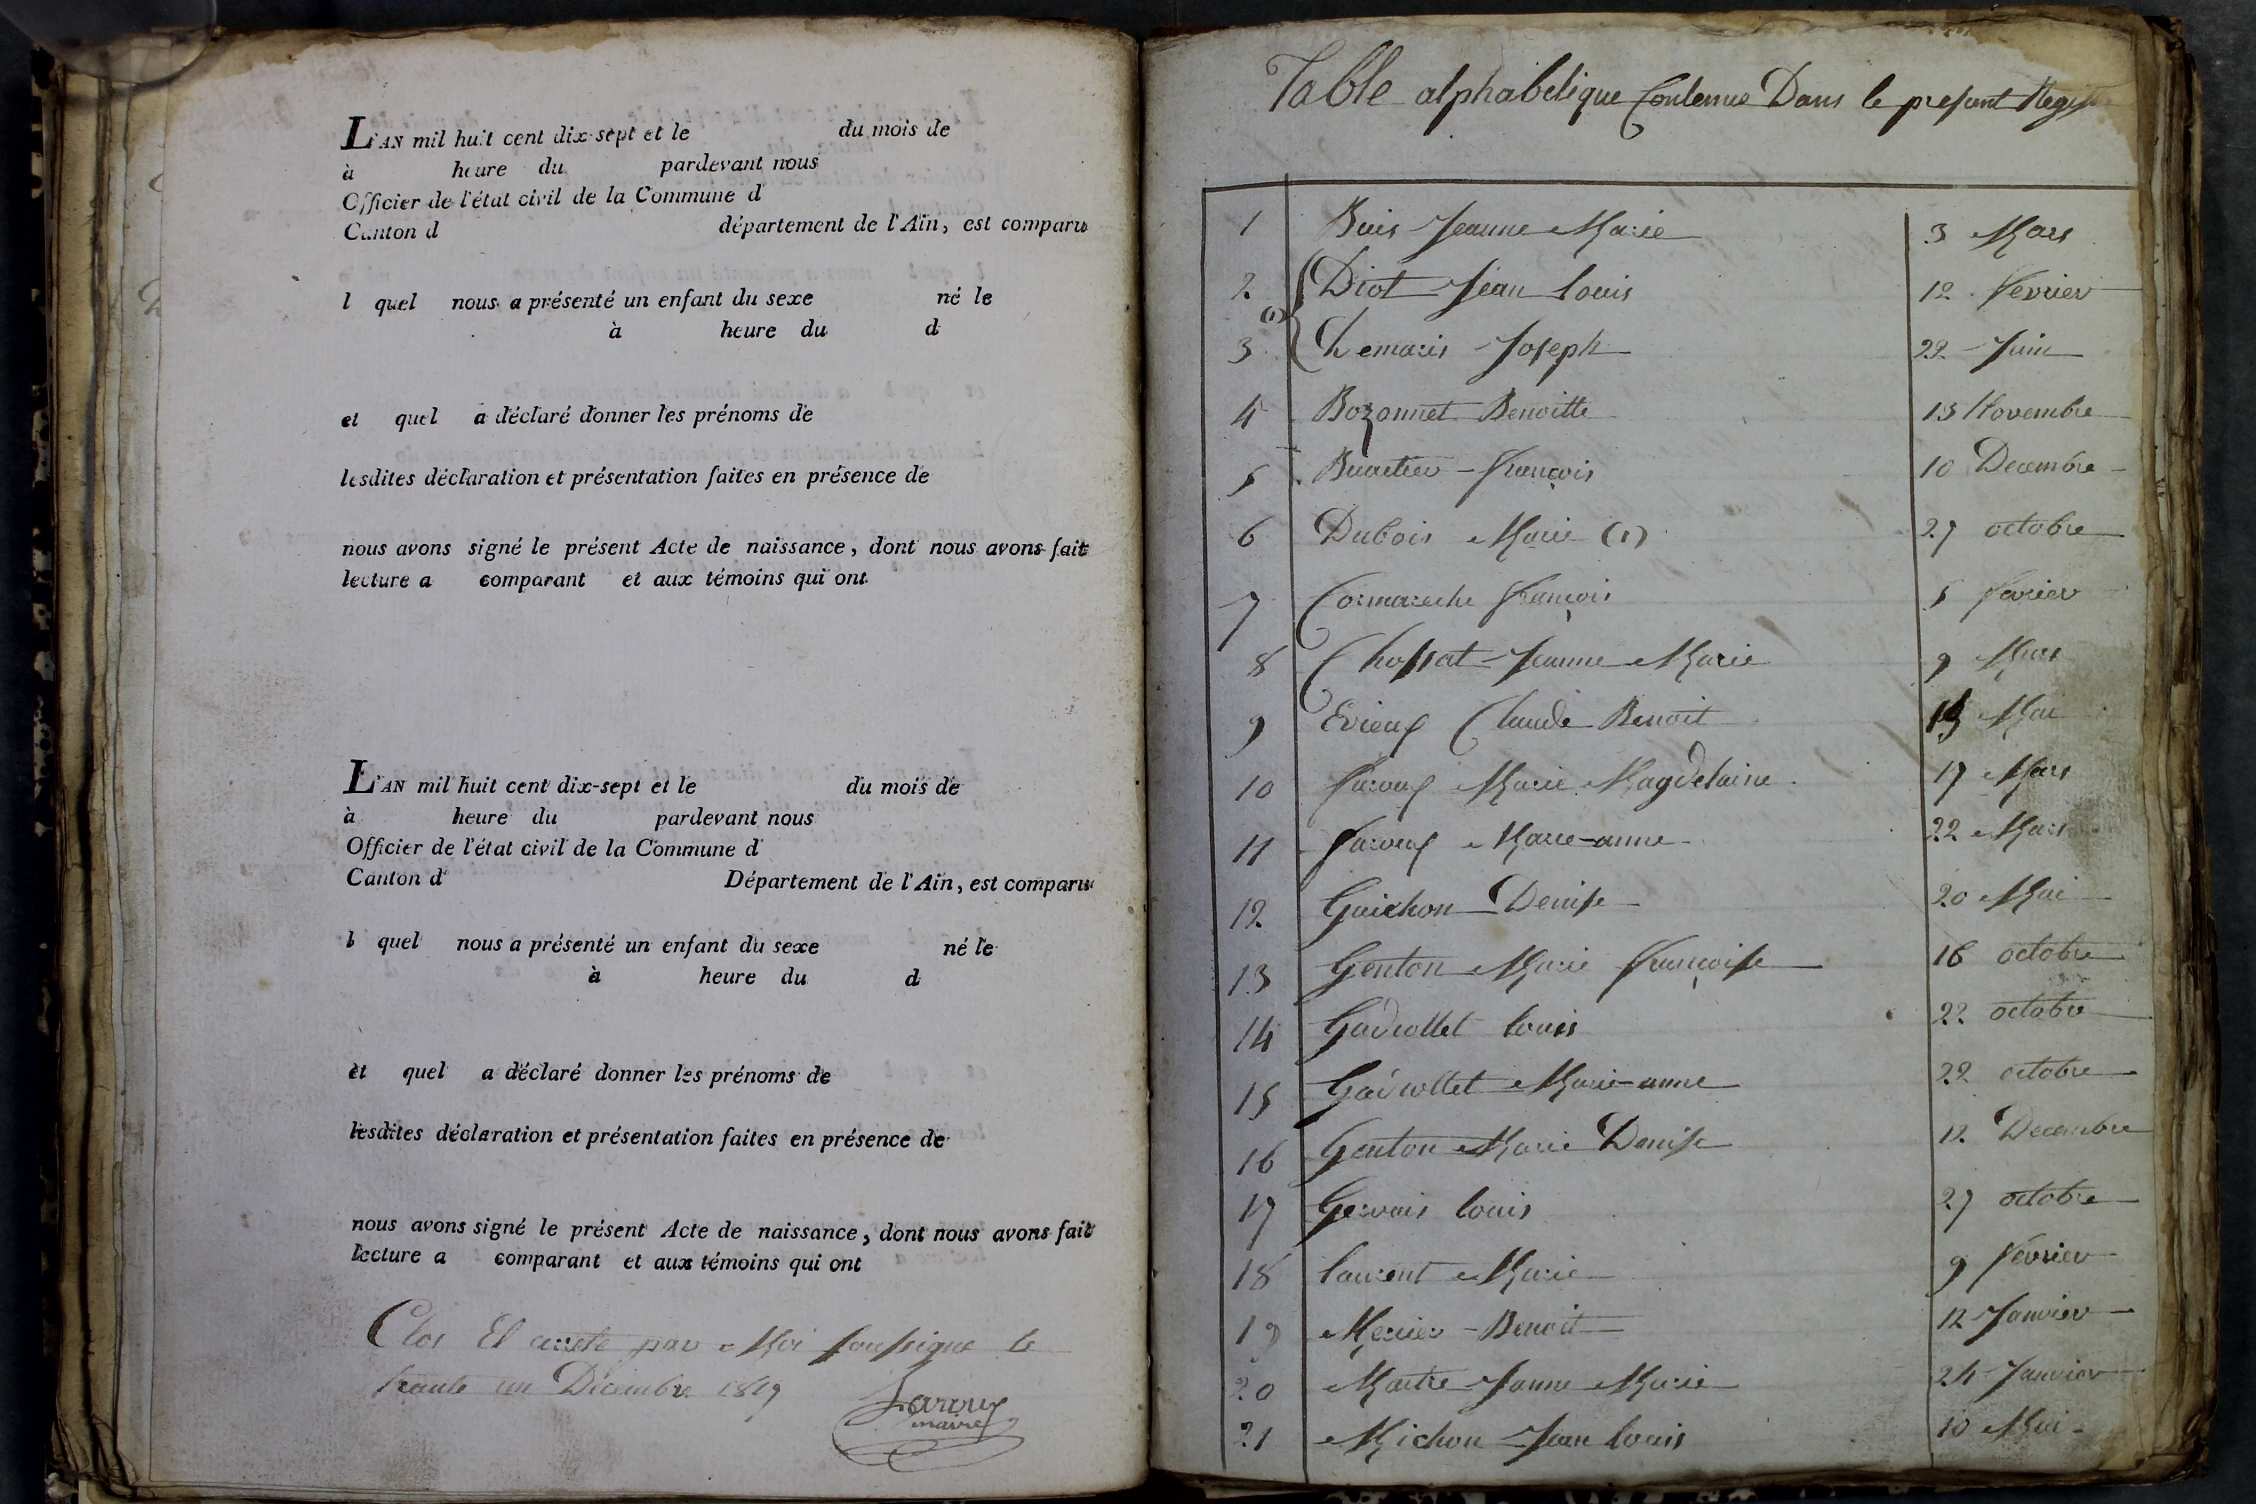 L'AN mil huit cent dix-sept et le du mois de
à heure du pardevant nous
Officier de l'état civil de la Commune d
Canton d département de l'Ain, est comparu
l quel nous a présenté un enfant du sexe né le
à heure du d
et quel a déclaré donner les prénoms de
lesdites déclaration et présentation faites en présence de
nous avons signé le présent Acte de naissance, dont nous avons fait
lecture a comparant et aux témoins qui ont
L'AN mil huit cent dix-sept et le du mois de
à heure du pardevant nous
Officier de l'état civil de la Commune d
Canton d Département de l'Ain, est comparu
l quel nous a présenté un enfant du sexe né le
à heure du d
et quel a déclaré donner les prénoms de
lesdites déclaration et présentation faites en présence de
nous avons signé le présent Acte de naissance, dont nous avons fait
lecture a comparant et aux témoins qui ont
Clos Et arrete par Moi soussigne le
trante un Décembre 1817
maire
Table alphabetique Contenue Dans le present Registre
1 Buis Jeanne Marie 3 Mars
2 Diot Jean Louis 12 fevrier
(1)
3 Chemaris Joseph 22 Juin
4 Bozonnet Benoitte 15 Novembre
5 François 10 Decembre
6 Dubois Marie (1) 27 octobre
7 Cormareche François 5 fevrier
8 Chossat Jeanne Marie 9 Mars
9 Evieux Claude Benoit Mai
10 faroux Marie Magdelaine 17 Mars
11 faroux Marie-anne 22 Mars
12 Guichon Denise 20 Mai
13 Genton Marie françoise 16 octobre
14 Gadiollet Louis 22 octobre
15 Gadiollet Marie-anne 22 octobre
16 Genton Marie Denise 12 Decembre
17 Gervais Louis 27 octobre
18 Laurent Marie 9 fevrier
19 Mercier Benoit 12 Janvier
20 Maitre Janne Marie 24 Janvier
21 Michon Jean Louis 10 Mai